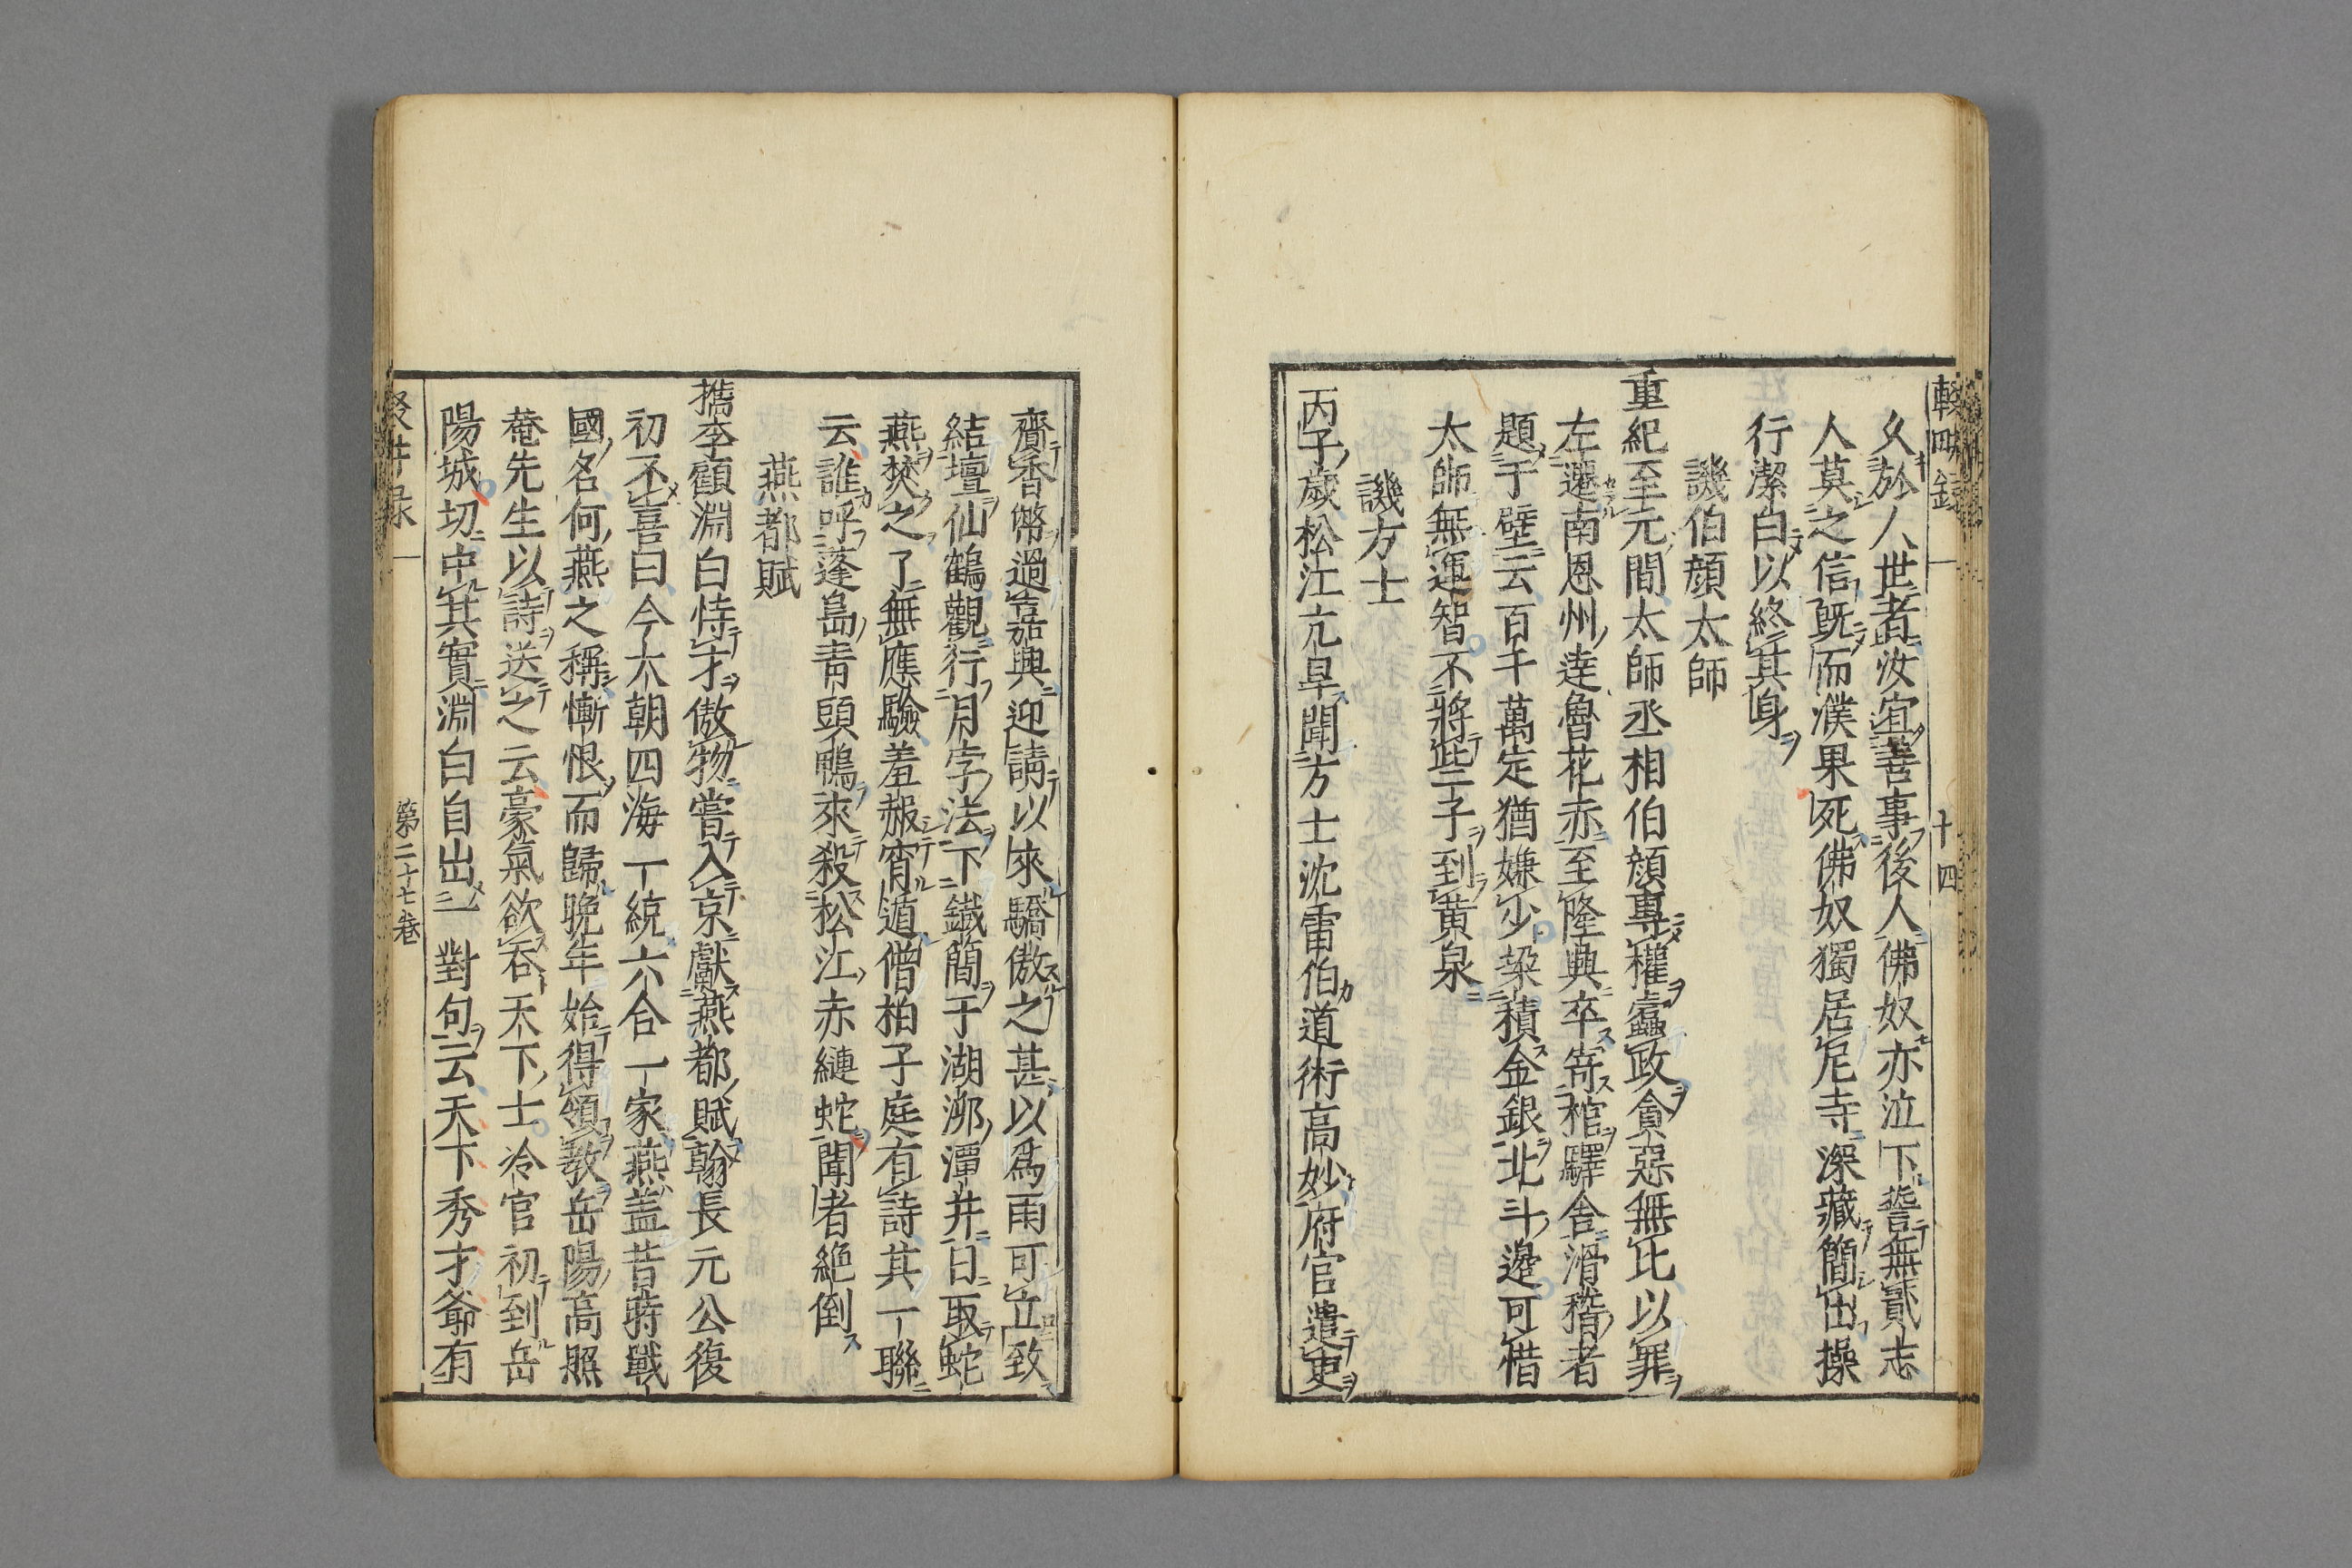 輟畊録 十四
久於人世者汝宜善事後人佛奴亦泣下誓無貳志
人莫之信既而濮果死佛奴獨居尼寺深藏簡出操
行潔白以終其身
譏伯顔太師
重紀至元間太師丞相伯顔專權蠹政貪惡無比以罪
左遷南恩州達魯花赤至隆興卒寄棺驛舍滑稽者
題于壁云百千萬定猶嫌少垜積金銀北斗邊可惜
太師無運智不將些子到黄泉
譏方士
丙子歳松江亢旱聞方士沈雷伯道術高妙府官遣吏
齎香幣過嘉興迎請以來驕傲之甚以爲雨可立致
結壇仙鶴觀行月孛法下鐵簡于湖泖潭井日取蛇
燕焚之了無應驗羞赧宵遁僧柏子庭有詩其一聯
云誰呼蓬島青頭鴨來殺松江赤練蛇聞者絶倒
燕都賦
檇李顧淵白恃才傲物嘗入京獻燕都賦翰長元公復
初不喜曰今大朝四海一統六合一家燕蓋昔蒋戰
國名何燕之稱慚恨而歸晩年始得領教岳陽高照
菴先生以詩送之云豪氣欲呑天下士冷官初到岳
陽城切中其實淵白自出一對句云天下秀才爺有
第二十七巻